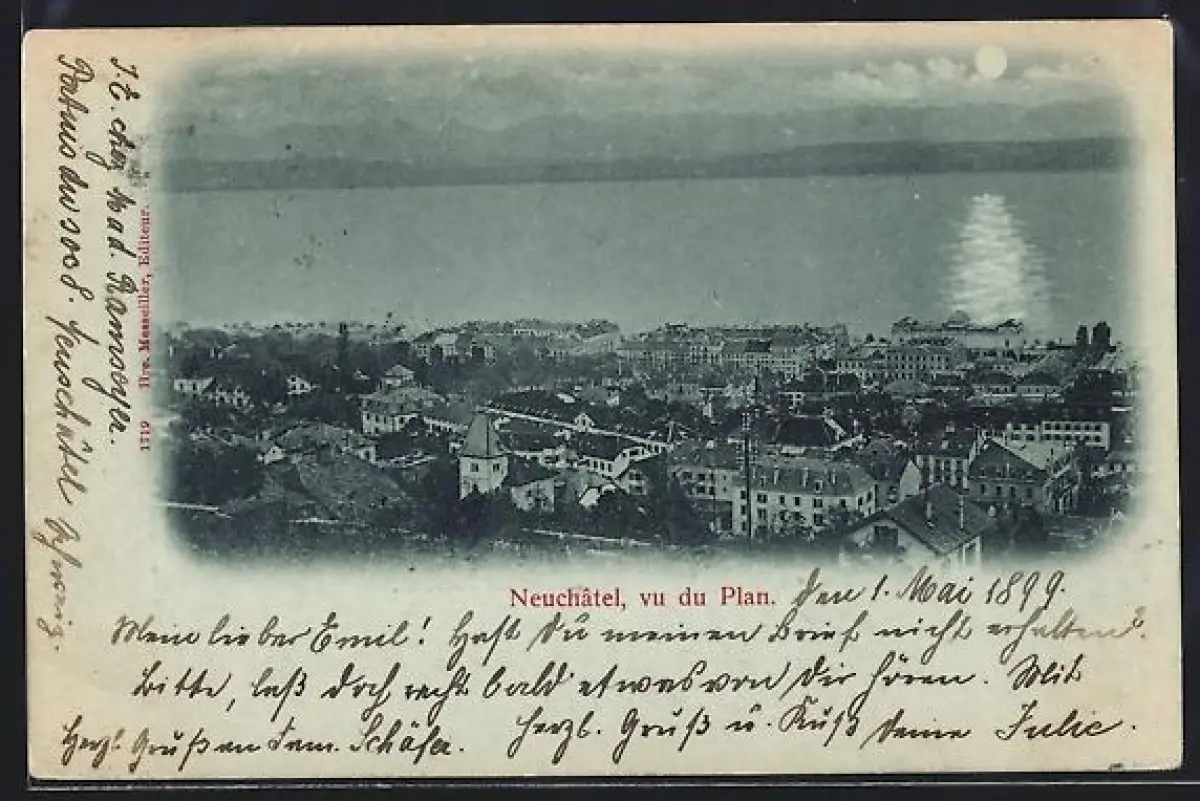 Neuchâtel, vu du Plan.
den 1. Mai 1899.
Mein lieber Emil! Hast Du meinen Brief nicht erhalten?
Bitte, laß doch recht bald etwas von Dir hören. Mit
herzl. Gruß u. Kuß Deine Julie.
Herzl. Gruß an Fam. Schäfer.
1719 Hre. Messeiller, Editeur.
J. E. chez Mad. Ramseyer.
Pertuis du soc 8. Neuchâtel Schweiz.